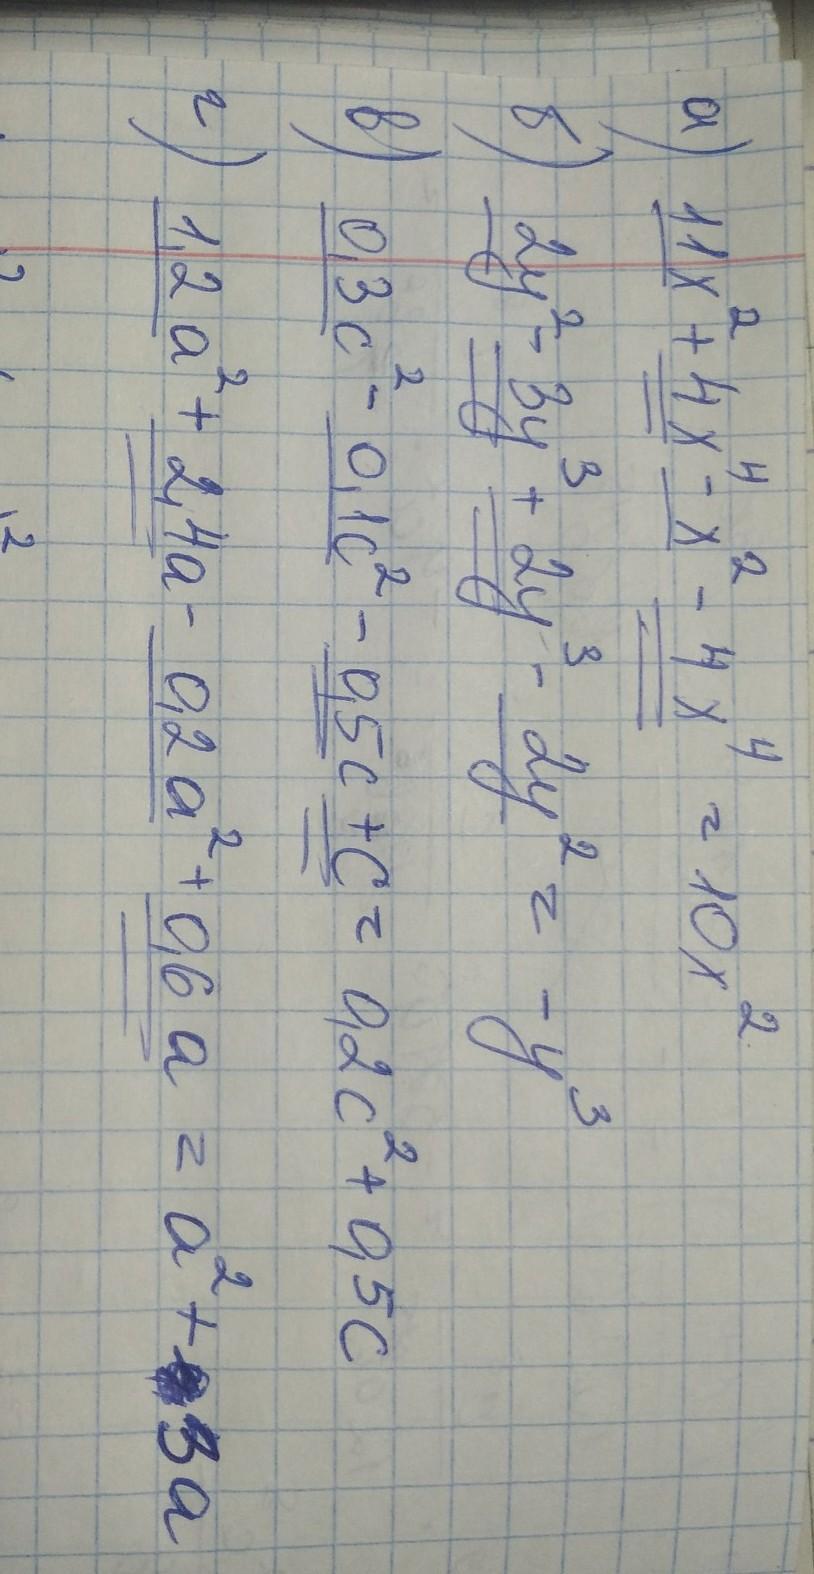 а) 11x² + 4x⁴ - x² - 4x⁴ = 10x²
б) 2y² - 3y³ + 2y³ - 2y² = -y³
в) 0,3c² - 0,1c² - 0,5c + c = 0,2c² + 0,5c
г) 1,2a² + 2,4a - 0,2a² + 0,6a = a² + 3a